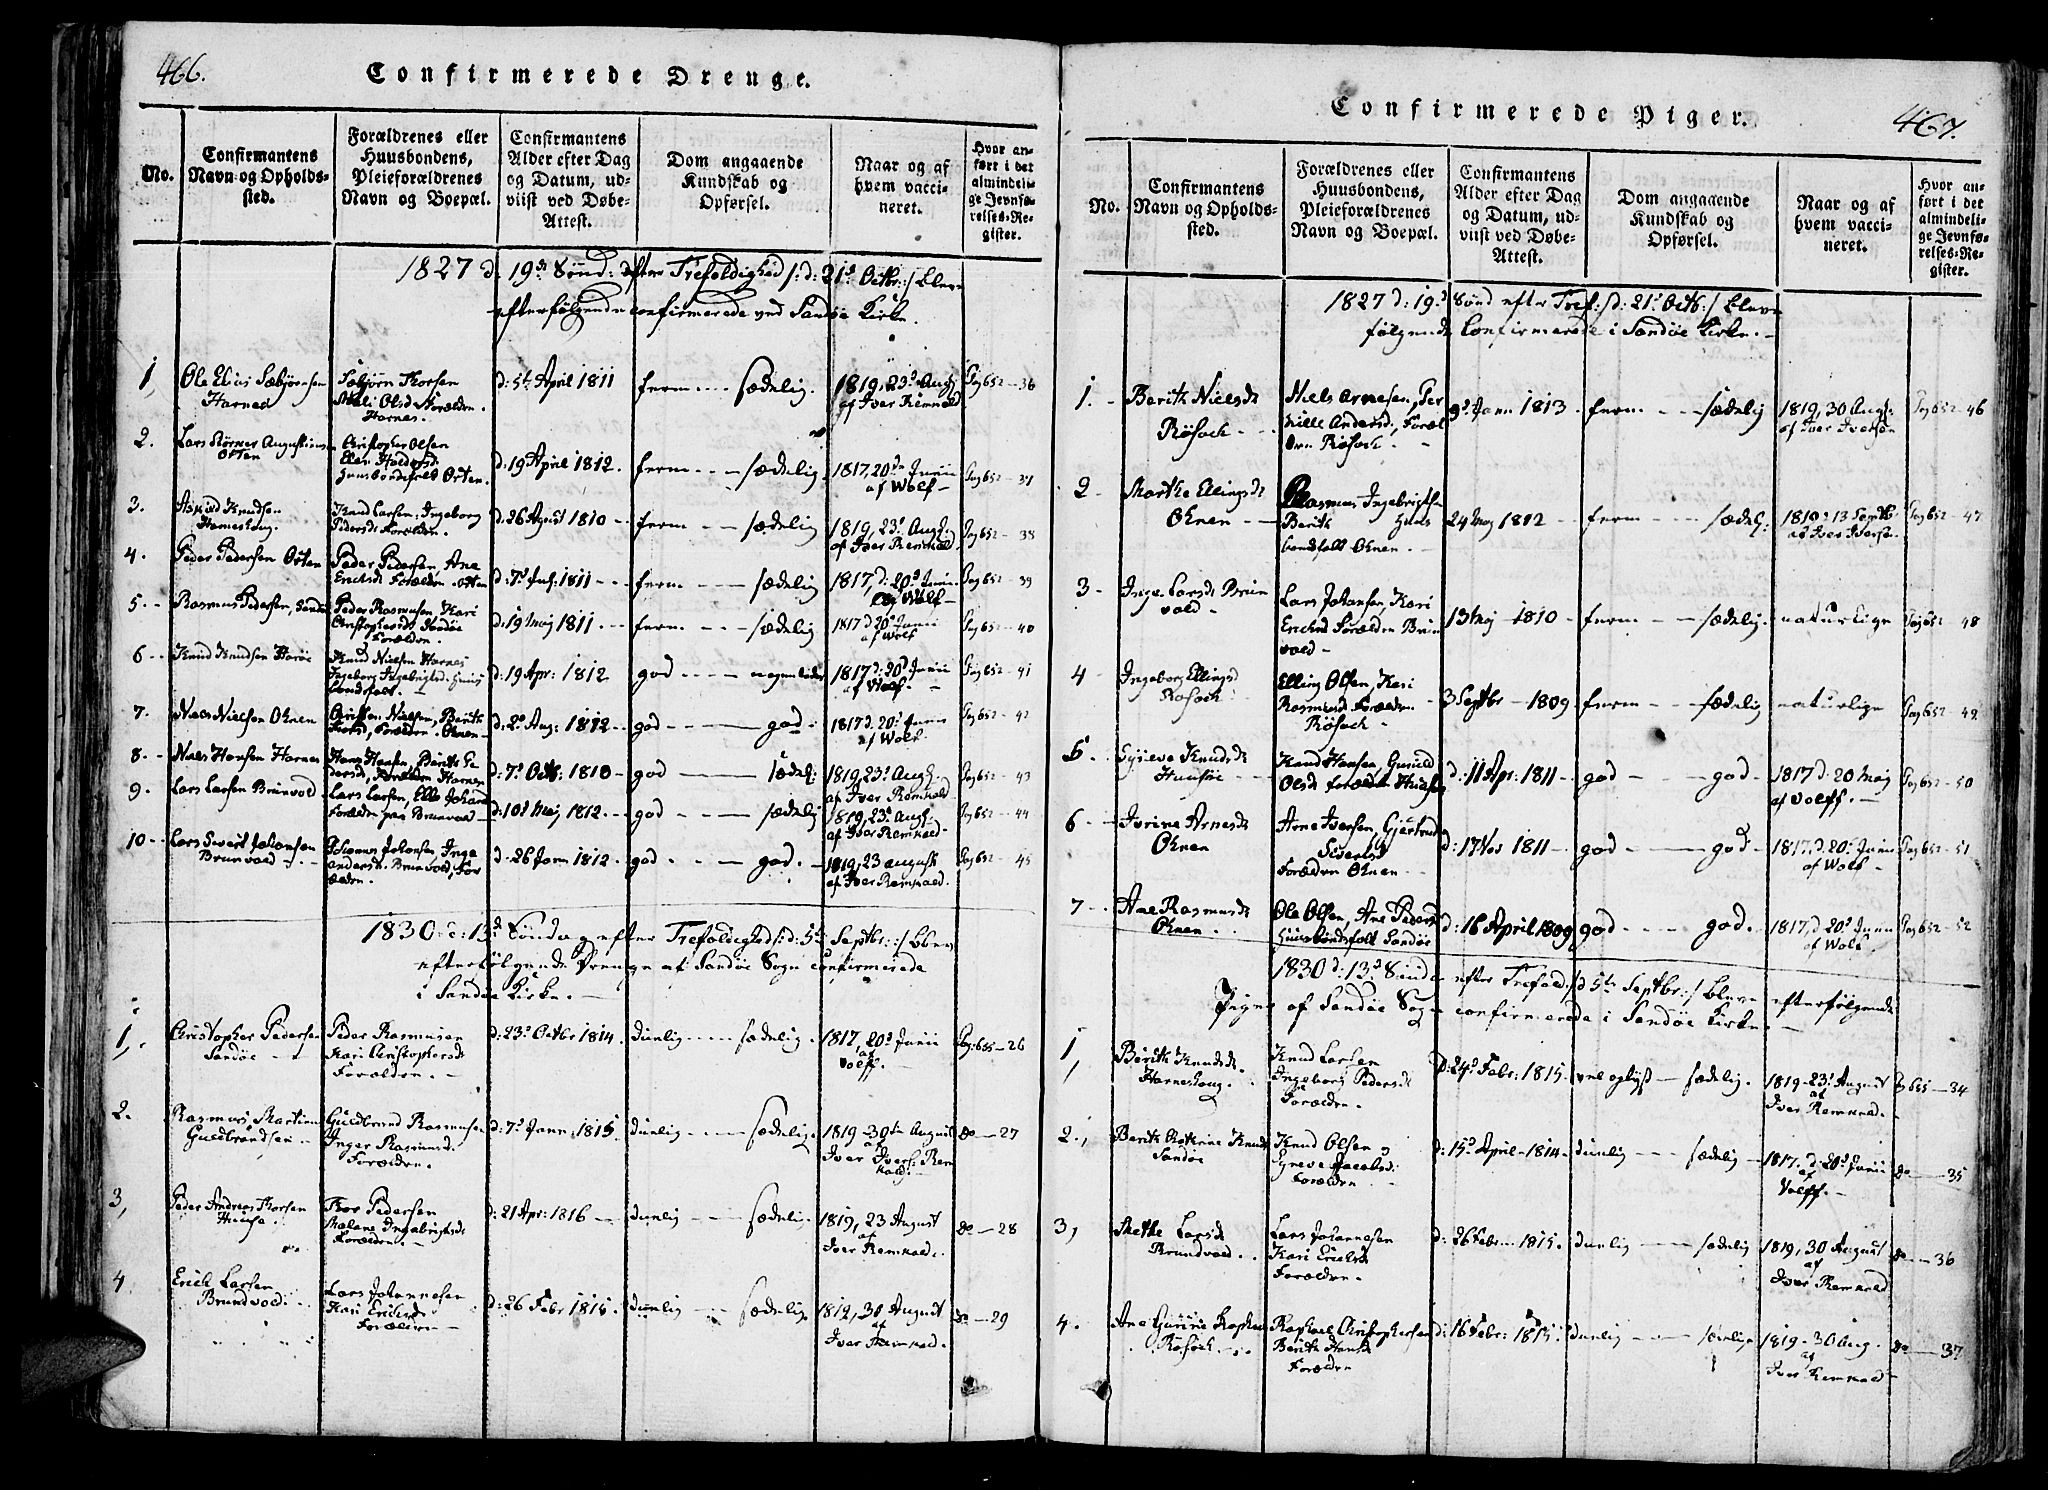 466.
Confirmerede Drenge.
No.
Confirmantens
Navn og Opholds-
sted.
Forældrenes eller
Huusbondens,
Pleieforældrenes
Navn og Boepæl.
Confirmantens
Alder efter Dag
og Datum, ud-
viist ved Døbe-
Attest.
Dom angaaende
Kundskab og
Opførsel.
Naar og af
hvem vacci-
neret.
Hvor an-
ført i det
almindeli-
ge Jevnfø-
relses-Re-
gister.
1827 d. 19de Sønd: efter Trefoldighed /: d: 21d Octbr: :/ bleve
efterfølgende confirmerede ved Sandøe Kirke.
1, Ole Elias Sæbjørnsen
Harnes
Sæbjørn Thorsen
Mali Olsd Forældre.
Harnes.
d: 5te April 1811
ferm - - - sædelig.
1819, 23d Augs
af Iver Remvald
Pag 652 - 36
2. Lars Augustinsen
Orten
Christopher Olsen
Huusbondsfolk Orten.
d: 19 April 1812.
ferm - - - sædelig
1817, 20de Junii
af Wolf -
Pag 652 - 37
3. Knudsen
Harneshoug.
Knud Larsen, Ingeborg
Pedersd: Forældre.
d: 26 Agust 1810
ferm - - sædelig
1819, 23d Augs:
af Iver Remvald.
Pag 652 - 38
4. Peder Pedersen Orten
Peder Pedersen, Ane
Erichsd Forældre. Orten
d: 7d Jul: 1811 - -
ferm - - - sædelig
1817, d: 20d Junii.
af Wolf -
Pag 652 - 39
5. - - Rasmus Pedersen, Sandøe
Peder Rasmusen Kari
Christophersd Sandøe
Forældre.
d: 19 Maj 1811. - -
ferm - - - sædelig
1817 d 20d Junii
af Wolf
Pag 652 - 40
6 - - Knud Knudsen Harøe
Knud Nielsen Harnes
Ingeborg Ingebrigtsd. Huus
bondsfolk. -
d: 19 Apr: 1812
god - - - - nogenledes
1817 d: 20d Junii
af Wolf. -
Pag 652 - 41
7. - Niels Nielsen Ohnen
Nielsen, Berith
Forældre. Ohnen -
d: 2d Aug: 1812 -
god - - - - god -
1817 d: 20d Junii
af Wolf.
Pag 652 - 42
8. - - Niels Hansen Harnes
Hans Hansen, Berith Pe
dersd, Forældre Harnes
d: 7d Octb: 1810 -
god - - - - sædel:
1819, 23d Augs.
af Iver Remvald -
Pag 652 - 43
9. - Lars Larsen Brunvold
Lars Larsen, Elle Johans
Forældre paa Brunvold -
d: 10d Maj 1812. -
god - - - - sædelig
1819, 23d Augs.
af Iver Remvald -
Pag 652 - 44
10 - - Lars Sivert Johansen
Brunvold - -
Johansen Inge
Andersd. Brunvold, For
ældre.
d: 26 Jann 1812. -
god - - - god. -
1819, 23 August
af Iver Remvald.
Pag 652 - 45
1830 d: 13d Søndag efter Trefoldighed /: d: 5te Septbr: :/ bleve
efterfølgende Drenge af Sandøe Sogn confirmerede
i Sandøe Kirke. -
1, - Christopher Pedersen
Sandøe - -
Peder Rasmusen
Kari Christophersd
Forældre. -
d: 23d Octbr 1814.
duelig - - - - sædelig.
1817, 20d Junii
af
Volff. -
Pag: 655 - 26
2. Rasmus Martin
Guldbrandsen - -
Guldbrand Rasmusen
Inger Rasmusd.
Forældre.
d: 7d Jann 1815.
duelig - - - - sædelig.
1819 - 30te August
af
Iver Ivers: Rem
vald.
do - 27
3, Peder Andreas Thorsen
Huusøe
Thor Pedersen
Malene Ingebrigtsd
Forældre. -
d: 21 Apr: 1816 - -
duelig - - - sædelig.
1819, 23 August
af
Iver Remvald.
do - 28
4 Erich Larsen
Brundvold. -
Lars Johannesen
Kari Erichsd
Forældre -
d: 26 Febr 1815.
duelig - - - sædelig.
1819, 30 August
af
Iver Remvald.
do - 29
467.
Confirmerede Piger.
No.
Confirmantens
Navn og Opholds-
sted.
Forældrenes eller
Huusbondens,
Pleieforældrenes
Navn og Boepæl.
Confirmantens
Alder efter Dag
og Datum, ud-
viist ved Døbe-
Attest.
Dom angaaende
Kundskab og
Opførsel.
Naar og af
hvem vacci-
neret.
Hvor an-
ført i det
almindeli-
ge Jevnfø-
relses-Re-
gister.
1827 d: 19d Sønd efter Tref: /: d: 21d Octb: :/ bleve
følgende Confirmerede i Sandøe Kirke. -
1. - Berith Nielsd
Røsoch - -
Niels Arnesen, Per
nille Andersd, Foræl
dre Røsoch - -
9d Jann 1813 -
ferm - - - sædelig
1819, 30 Augs:
af Iver Iversen
Pag 652 - 46
2 - Marthe Ellingsd
Ohnen - -
Rasmus Ingebrigtsen
Berith Huus
bondsfolk Ohnen. -
24 Maj 1812 - -
ferm - - - - sædel:
1819: 13 Septb.
af Iver Iversen.
Pag 652 - 47
3 - Larsd Brun
vold -
Lars Johansen, Kari
Erichsd Forældre Brun
vold -
13 Maj - 1810
ferm - - - sædelig.
naturlige
Pag 652 - 48
4 - Ingeborg Ellingsd
Røsoch -
Elling Olsen, Kari
Rasmusd Forældre
Røsoch -
3 Septbr - 1809
ferm - - - sædelig
naturlige
Pag 652 - 49
5. Synneve Knudsd
Huusøe - -
Knud Hansen, Gunild
Olsd Forældre Huusøe
d: 11 Apr: 1811 -
god - - - - god -
1817 d. 20 Maj
af Volff. -
Pag 652 - 50
6 - - Iverine Arnesd
Ohnen
Arne Iversen, Gjertrud
Sivertsd
Forældre Ohnen - -
d: 17 Nov 1811 -
god - - - - god
1817, d. 20d Junii
af Wolf -
Pag 652 - 51
7 - - Ane Rasmusd
Ohnen - .
Ole Olsen, Ane Pedersd
Huusbondsfolk Sandøe
d: 16 April 1809
god - - - - god.
1817, d 20d Junii
af Wolf -
Pag 652 - 52
1830 d: 13d Sønda efter Trefold: /: d 5te Septbr: :/ bleve efterfølgende
Piger af Sandøe Sogn confirmerede i Sandøe Kirke. -
1, Berith Knudsd.
Harneshoug.
Knud Larsen
Ingeborg Pedersd
Forældre.
d: 24d Febr: 1815.
vel oplyst - sædelig.
1819 - 23d August
af
Iver Remvald. -
Pag 655 - 34
2., Berith Knudsd
Sandøe
Knud Olsen
Synneve Jacobsd:
Forældre -
d: 15d April - 1814 -
duelig - - - sædelig -
1817. d: 20d Junii
af
Volff. -
do - 35
3, Larsd
Brundvold. -
Lars Johannesen
Kari Erichsd
Forældre. -
d: 26 Febr - 1815.
duelig - - - sædelig
1819, 30 August
af
Iver Remvald
do - 36
4. Ane
Røsoch - - -
Raphael Christophersen
Berith Hansd
Forældre
d: 16 Febr: 1815.
duelig - - - sædelig
1819 - 30 Aug.
af
Iver Remvald -
do - 37